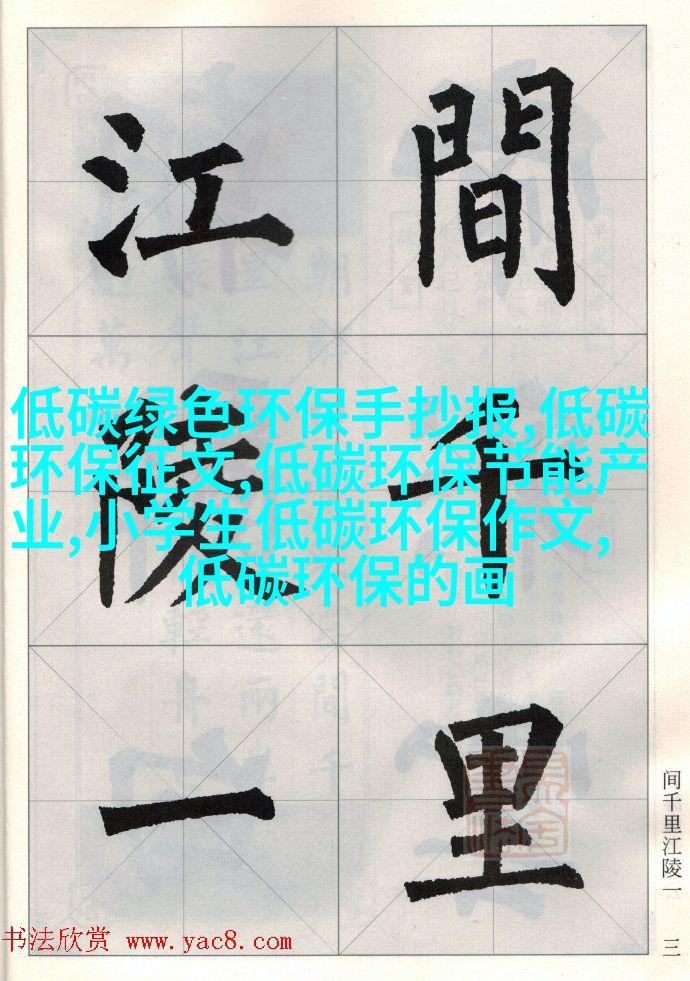 間千里
江陵一
低碳绿色环保手抄报,低碳
环保征文,低碳环保节能产
业,小学生低碳环保作文,
低碳环保的画
间千里江陵一 三
书法欣赏 www.yac8.com